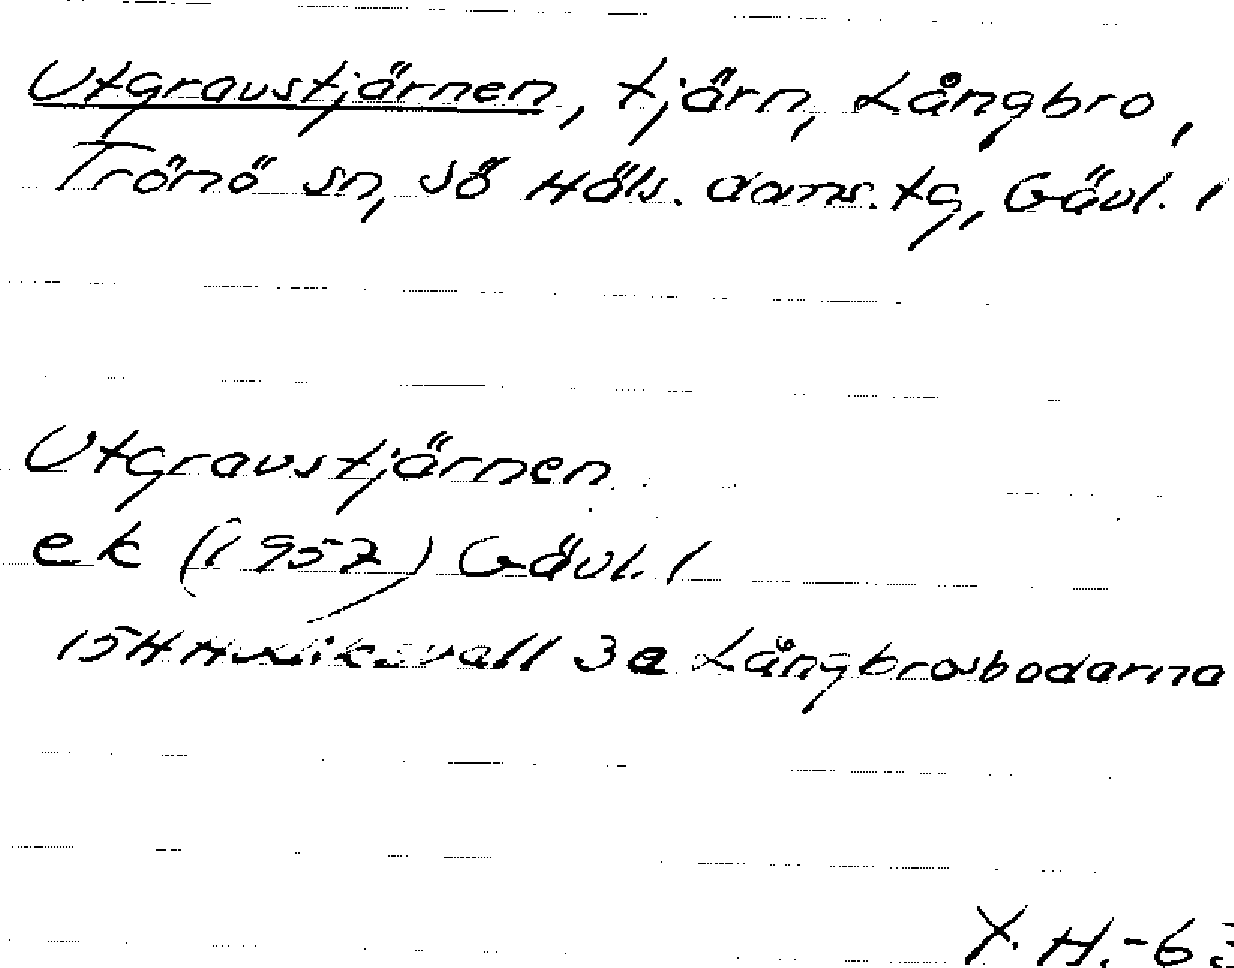 Utgravstjärnen, tjärn, Långbro,
Trönö sn, sö Häls. doms.tg, Gävl. l
Utgravstjärnen
ek (1957) Gävl. l
15H Hudiksvall 3a Långbrosbodarna
Y. H.-63